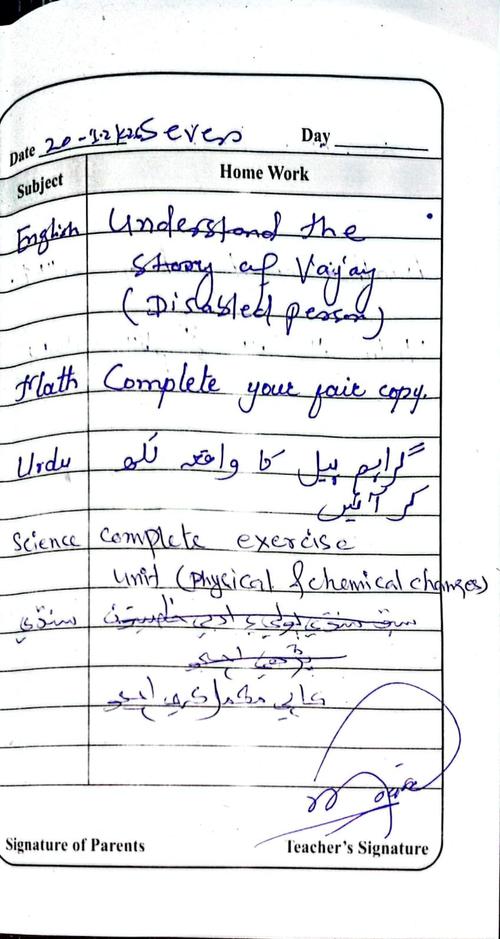 Date 20-12-2k25 Seven Day
Subject Home Work
English Understand the
story of Vajay
(Disabled person)
Math Complete your fair copy.
Urdu گراہم بیل کا واقعہ لکھ
کر آئیں
Science complete exercise
unit (physical & chemical changes)
سنڌي
ڪاپي مڪمل ڪري اچو
Signature of Parents Teacher's Signature